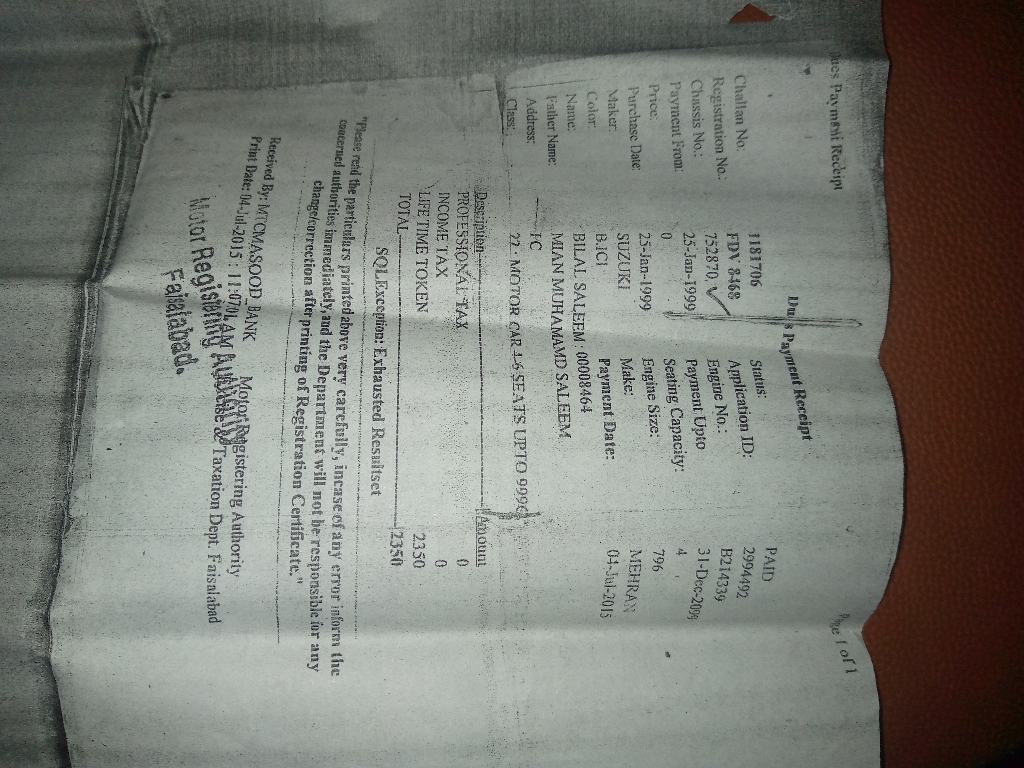 ues Payment Receipt Page 1 of 1
Dues Payment Receipt
Challan No: 1181706 Status: PAID
Registration No.: FDV 8468 Application ID: 2994492
Chassis No.: 752870 Engine No.: B214339
Payment From: 25-Jan-1999 Payment Upto 31-Dec-2099
Price: 0 Seating Capacity: 4
Purchase Date: 25-Jan-1999 Engine Size: 796
Maker: SUZUKI Make: MEHRAN
Color: Payment Date: 04-Jul-2015
Name: BILAL SALEEM : 00008464
Father Name: MIAN MUHAMAMD SALEEM
Address: FC
Class: 22 - MOTOR CAR 4-6 SEATS UPTO
Description Amount
PROFESSIONAL TAX 0
INCOME TAX 0
LIFE TIME TOKEN 2350
TOTAL 2350
SQLException: Exhausted Resultset
"Please read the particulars printed above very carefully, incase of any error inform the
concerned authorities immediately, and the Department will not be responsible for any
change/correction after printing of Registration Certificate."
Received By: MTCMASOOD_BANK Motor Registering Authority
Print Date: 04-Jul-2015 : 11:07 AM & Taxation Dept. Faisalabad
Motor Registering Authority
Faisalabad.